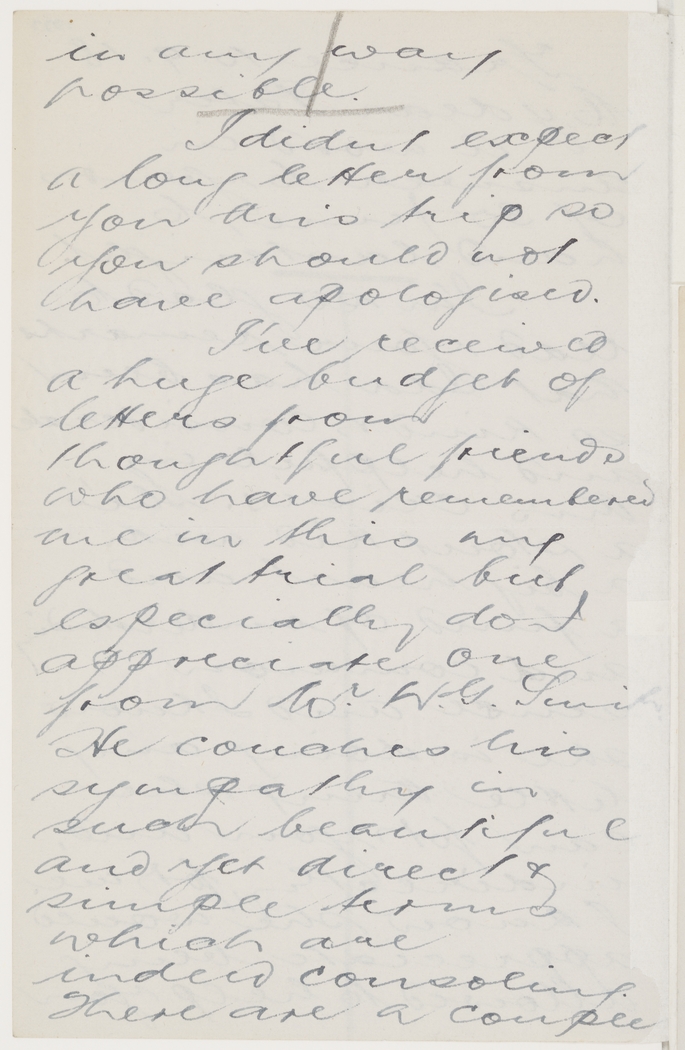 in any way
possible.
I didnt expect
a long letter from
you this trip so
you should not
have apologised.
I've received
a huge budget of
letters from
thoughtful friends
who have remembered
me in this my
great trial but
especially do I
appreciate one
from Mr. W.G. Smith.
He couches his
sympathy in
such beautiful
and yet direct &
simple terms
which are
indeed consoling.
There are a couple